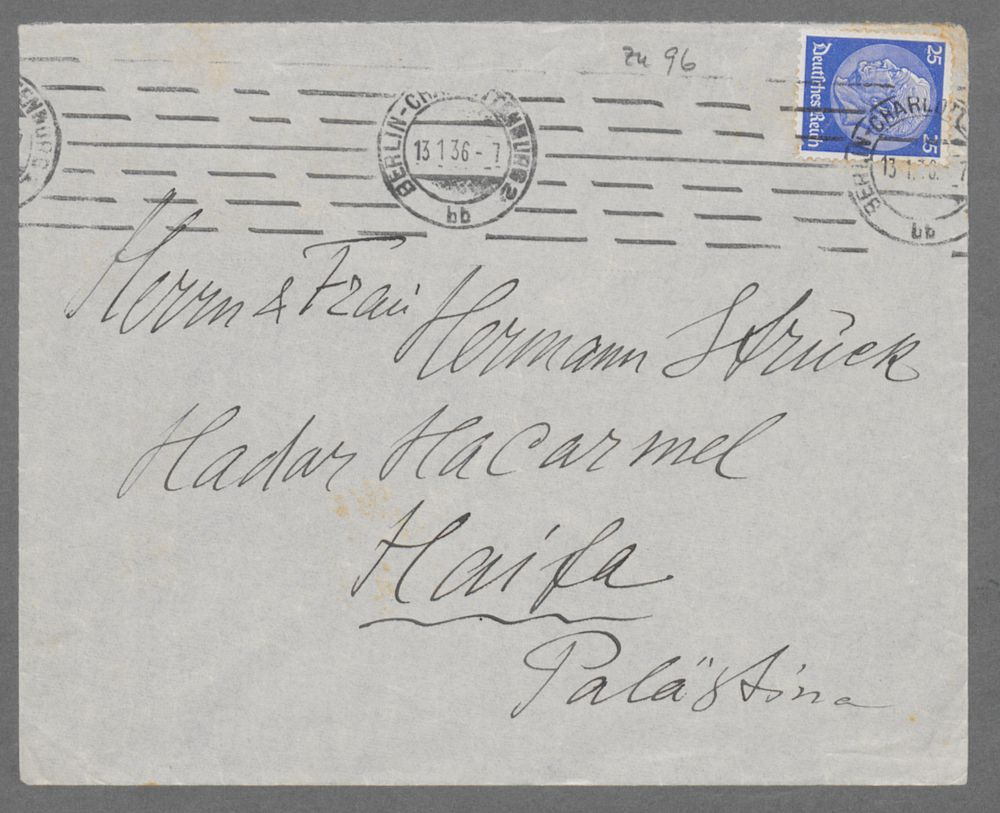 zu 96
25 Deutsches Reich 25
BERLIN-CHARLOTTENBURG 2
13.1.36-7
bb
BERLIN-CHARLOTTENBURG
13.1.36-7
bb
Herrn & Frau Hermann Struck
Hadar HaCarmel
Haifa
Palästina